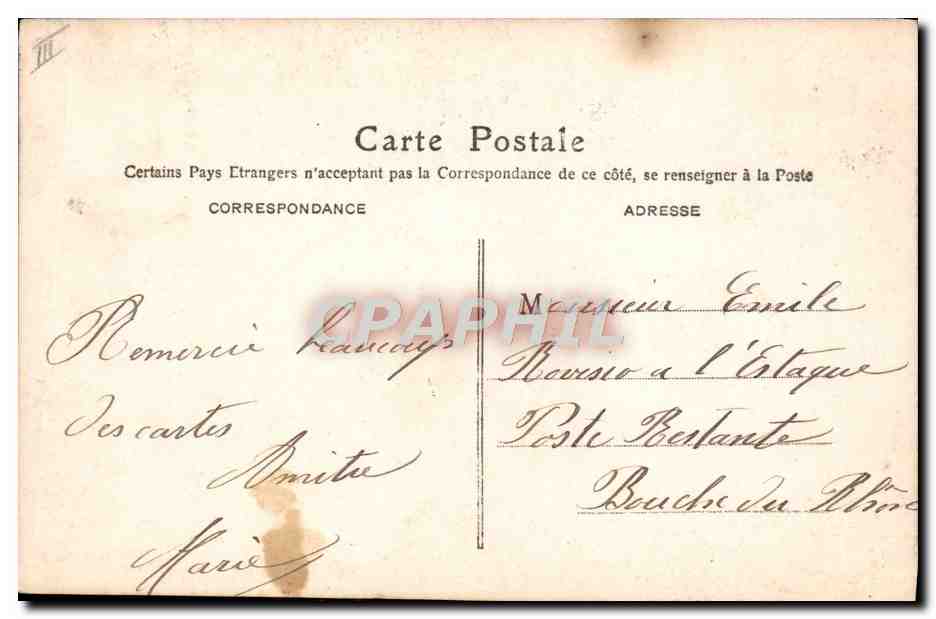 III
Carte Postale
Certains Pays Etrangers n'acceptant pas la Correspondance de ce côté, se renseigner à la Poste
CORRESPONDANCE
Remercie beaucoup
des cartes
Amitie
Marie
ADRESSE
Monsieur Emile
Rovisio a l'Estaque
Poste Restante
Bouche du Rhône
CPAPHIL